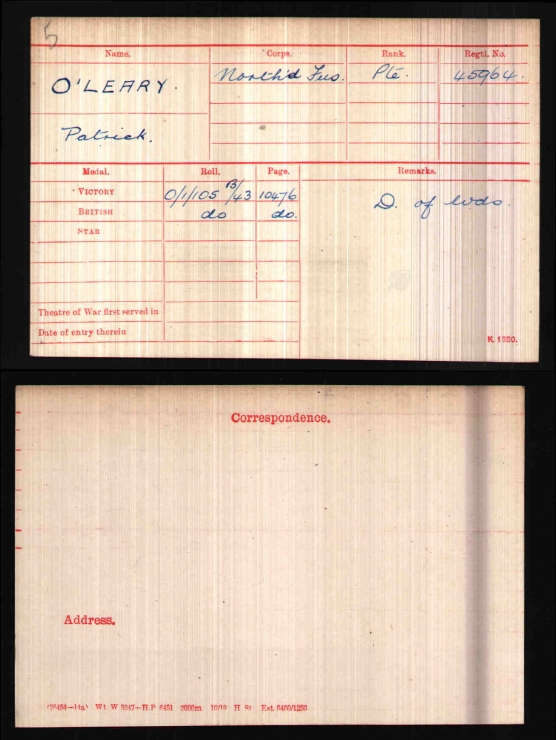 5
Name. Corps. Rank. Regtl. No.
O'LEARY. North'd Fus. Pte. 45964.
Patrick.
Medal. Roll. Page. Remarks.
VICTORY 0/1/105 B/43 10476 D. of wds.
BRITISH do do.
STAR
Theatre of War first served in
Date of entry therein
K. 1380.
Correspondence.
Address.
Wt. W 5347—H.P. 6451 2000m 10/19 H. St